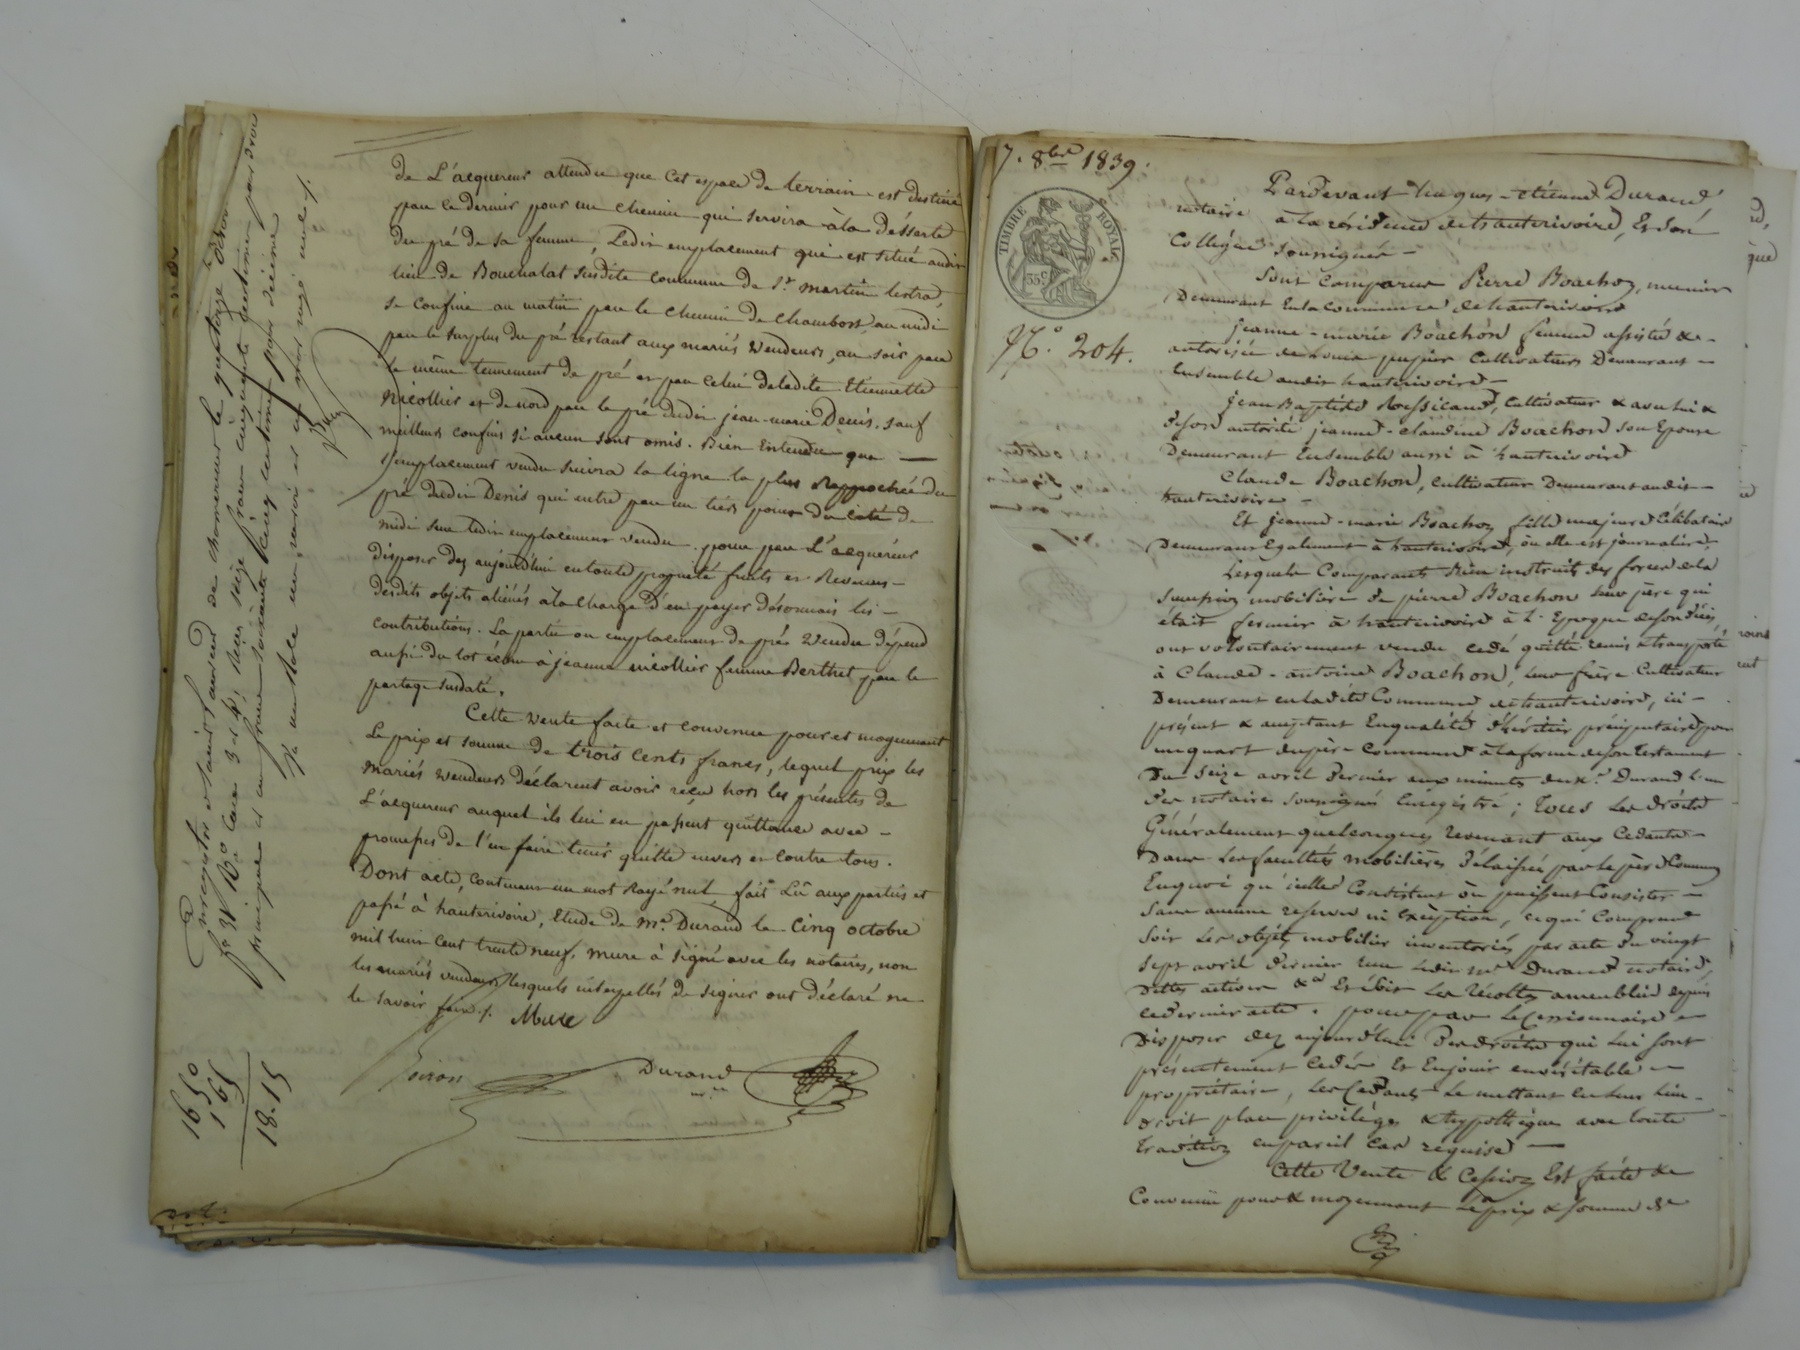 de L'acquereur attendu que cet espace de terrain est destiné
par ce dernier pour un chemin qui servira à la désserte
du pré de sa femme, Ledit emplacement qui est situé audit
lieu de Bouchalat susdite commune de St martin lestra,
se confine au matin par le chemin de Chambost, au midi
par le surplus du pré restant aux mariés vendeurs, au soir par
le même tennement de pré et par celui de ladite Etiennette
Nicollier et de nord par le pré dudit jean-marie Denis, sauf
meilleurs confins si aucun sont omis. Bien Entendu que
l'emplacement vendu suivra la ligne la plus Rapprochée du
pré dudit Denis qui entre par un tiers point du coté de
midi sur ledit emplacement vendu. pour par L'acquéreur
disposer dez aujourd'hui en toute propriété fruits et Revenus
desdits objets aliénés à la charge d'en payer désormais les
contributions. La partie ou emplacement de pré vendu dépend
aussi du lot échu à jeanne nicollier femme Berthet par le
partage susdaté.
Cette vente faite et convenue pour et moyennant
Le prix et somme de trois cents francs, lequel prix les
mariés vendeurs déclarent avoir reçu hors les présentes de
L'acquereur auquel ils lui en passent quittance avec
promesses de l'en faire tenir quitte envers et contre tous.
Dont acte, contenant un mot Rayé nul, fait Lû aux parties et
passé à hauterivoire, Etude de Me. Durand le cinq octobre
mil huit cent trente neuf. mure à signé avec les notaires, non
les mariés vendeurs lesquels interpellés de signer ont déclaré ne
le savoir faire ./. Mure
Boiron Durand
Enregistré à Saint Laurent de chamousset le quatorze octobre
fo 31 Ro Case 3 et 4; Reçu seize francs cinquante centimes pour droit
principal et un franc soixante cinq centimes pour décime
16 50
1 65
18.15
7. 8bre 1839.
TIMBRE ROYAL
35 c
No. 204.
Pardevant Jacques-étienne Durand
notaire à la résidence de hauterivoire, Et son
Collègue soussignés
Sont Comparus Pierre Boachon, meunier
Demeurant En la Commune de hauterivoire
Jeanne-marie Boachon femme assistée &
autorisée de Louis pupier Cultivateur Demeurant
Ensemble audit hauterivoire
Jean Baptiste Roussilland, Cultivateur & avec lui &
de son autorité jeanne-claudine Boachon son Epouse
Demeurant Ensemble aussi à hauterivoire
Claude Boachon, cultivateur Demeurant audit
hauterivoire
Et jeanne-marie Boachon fille majeure Célibataire
Demeurant Egalement à hauterivoire, où elle est journalière,
Lesquels Comparants Bien instruits des forces de la
Succession mobilière de pierre Boachon leur père qui
était fermier à hauterivoire à L'Epoque de son décès,
ont volontairement vendu cédé quitté remis & transporté
à Claude-antoine Boachon, leur frère Cultivateur
Demeurant en ladite Commune de hauterivoire, ici
présent & acceptant En qualité d'héritier préciputaire pour
un quart du père Commun à la forme de son testament
Du Seize avril dernier aux minutes de Me. Durand l'un
des notaires soussignés Enregistré; Tous Les droits
Généralement quelconques revenant aux Cedants
Dans Les facultés mobilières Délaissées par le père Commun
En quoi qu'icelles Consistent ou puissent Consister
Sans aucune reserve ni Exception, ce qui Comprend
Soit Les objets mobilier inventoriés par acte du vingt
sept avril dernier reçu ledit Me Durand notaire,
Dettes actives &a Et ébit Les récoltes ameublies depuis
ce dernier acte. pour par Le Cessionnaire
Disposer dez aujourd'hui Des droits qui Lui sont
présentement cédés Et En jouir en véritable
propriétaire, Les Cédants Le mettant en Leur Lieu
droit place privilèges & hypothèques avec toute
tradition en pareil cas requise
Cette Vente & Cession Est faite &
Convenue pour & moyennant Le prix & somme de